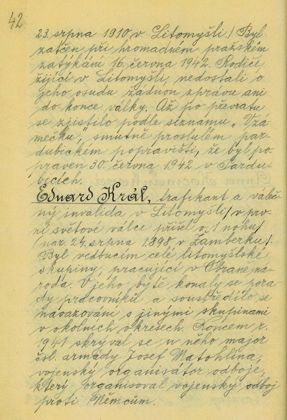 42
23. srpna 1910 v Litomyšli / Byl
zatčen při hromadném pražském
zatýkání 16. června 1942. Rodiče
žijící v Litomyšli, nedostali o
jeho osudu žádnou zprávu ani
do konce války. Až po převratu
se zjistilo podle seznamu „Zá
mečku“, smutně proslulém par-
dubickém popravišti, že byl po
praven 30. června 1942 v Pardu-
bicích.
Eduard Král, trafikant a váleč
ný invalida v Litomyšli / v prv
ní světové válce přišel o 1 nohu /
/ nar. 24. srpna 1898 v Žamberku /.
Byl vedoucím celé litomyšlské
skupiny, pracující v Obraně ná-
roda. V jeho bytě konaly se pora
dy pracovníků a soustředilo se
navazování s jinými skupinami
v okolních okresech. Koncem r.
1941 skrýval se u něho major
čsl. armády Josef Matohlína,
vojenský organisátor odboje,
který organisoval vojenský odboj
proti Němcům.